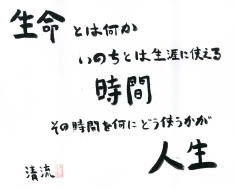 生命とは何か
いのちとは生涯に使える
時間
その時間を何にどう使うかが
人生
清流